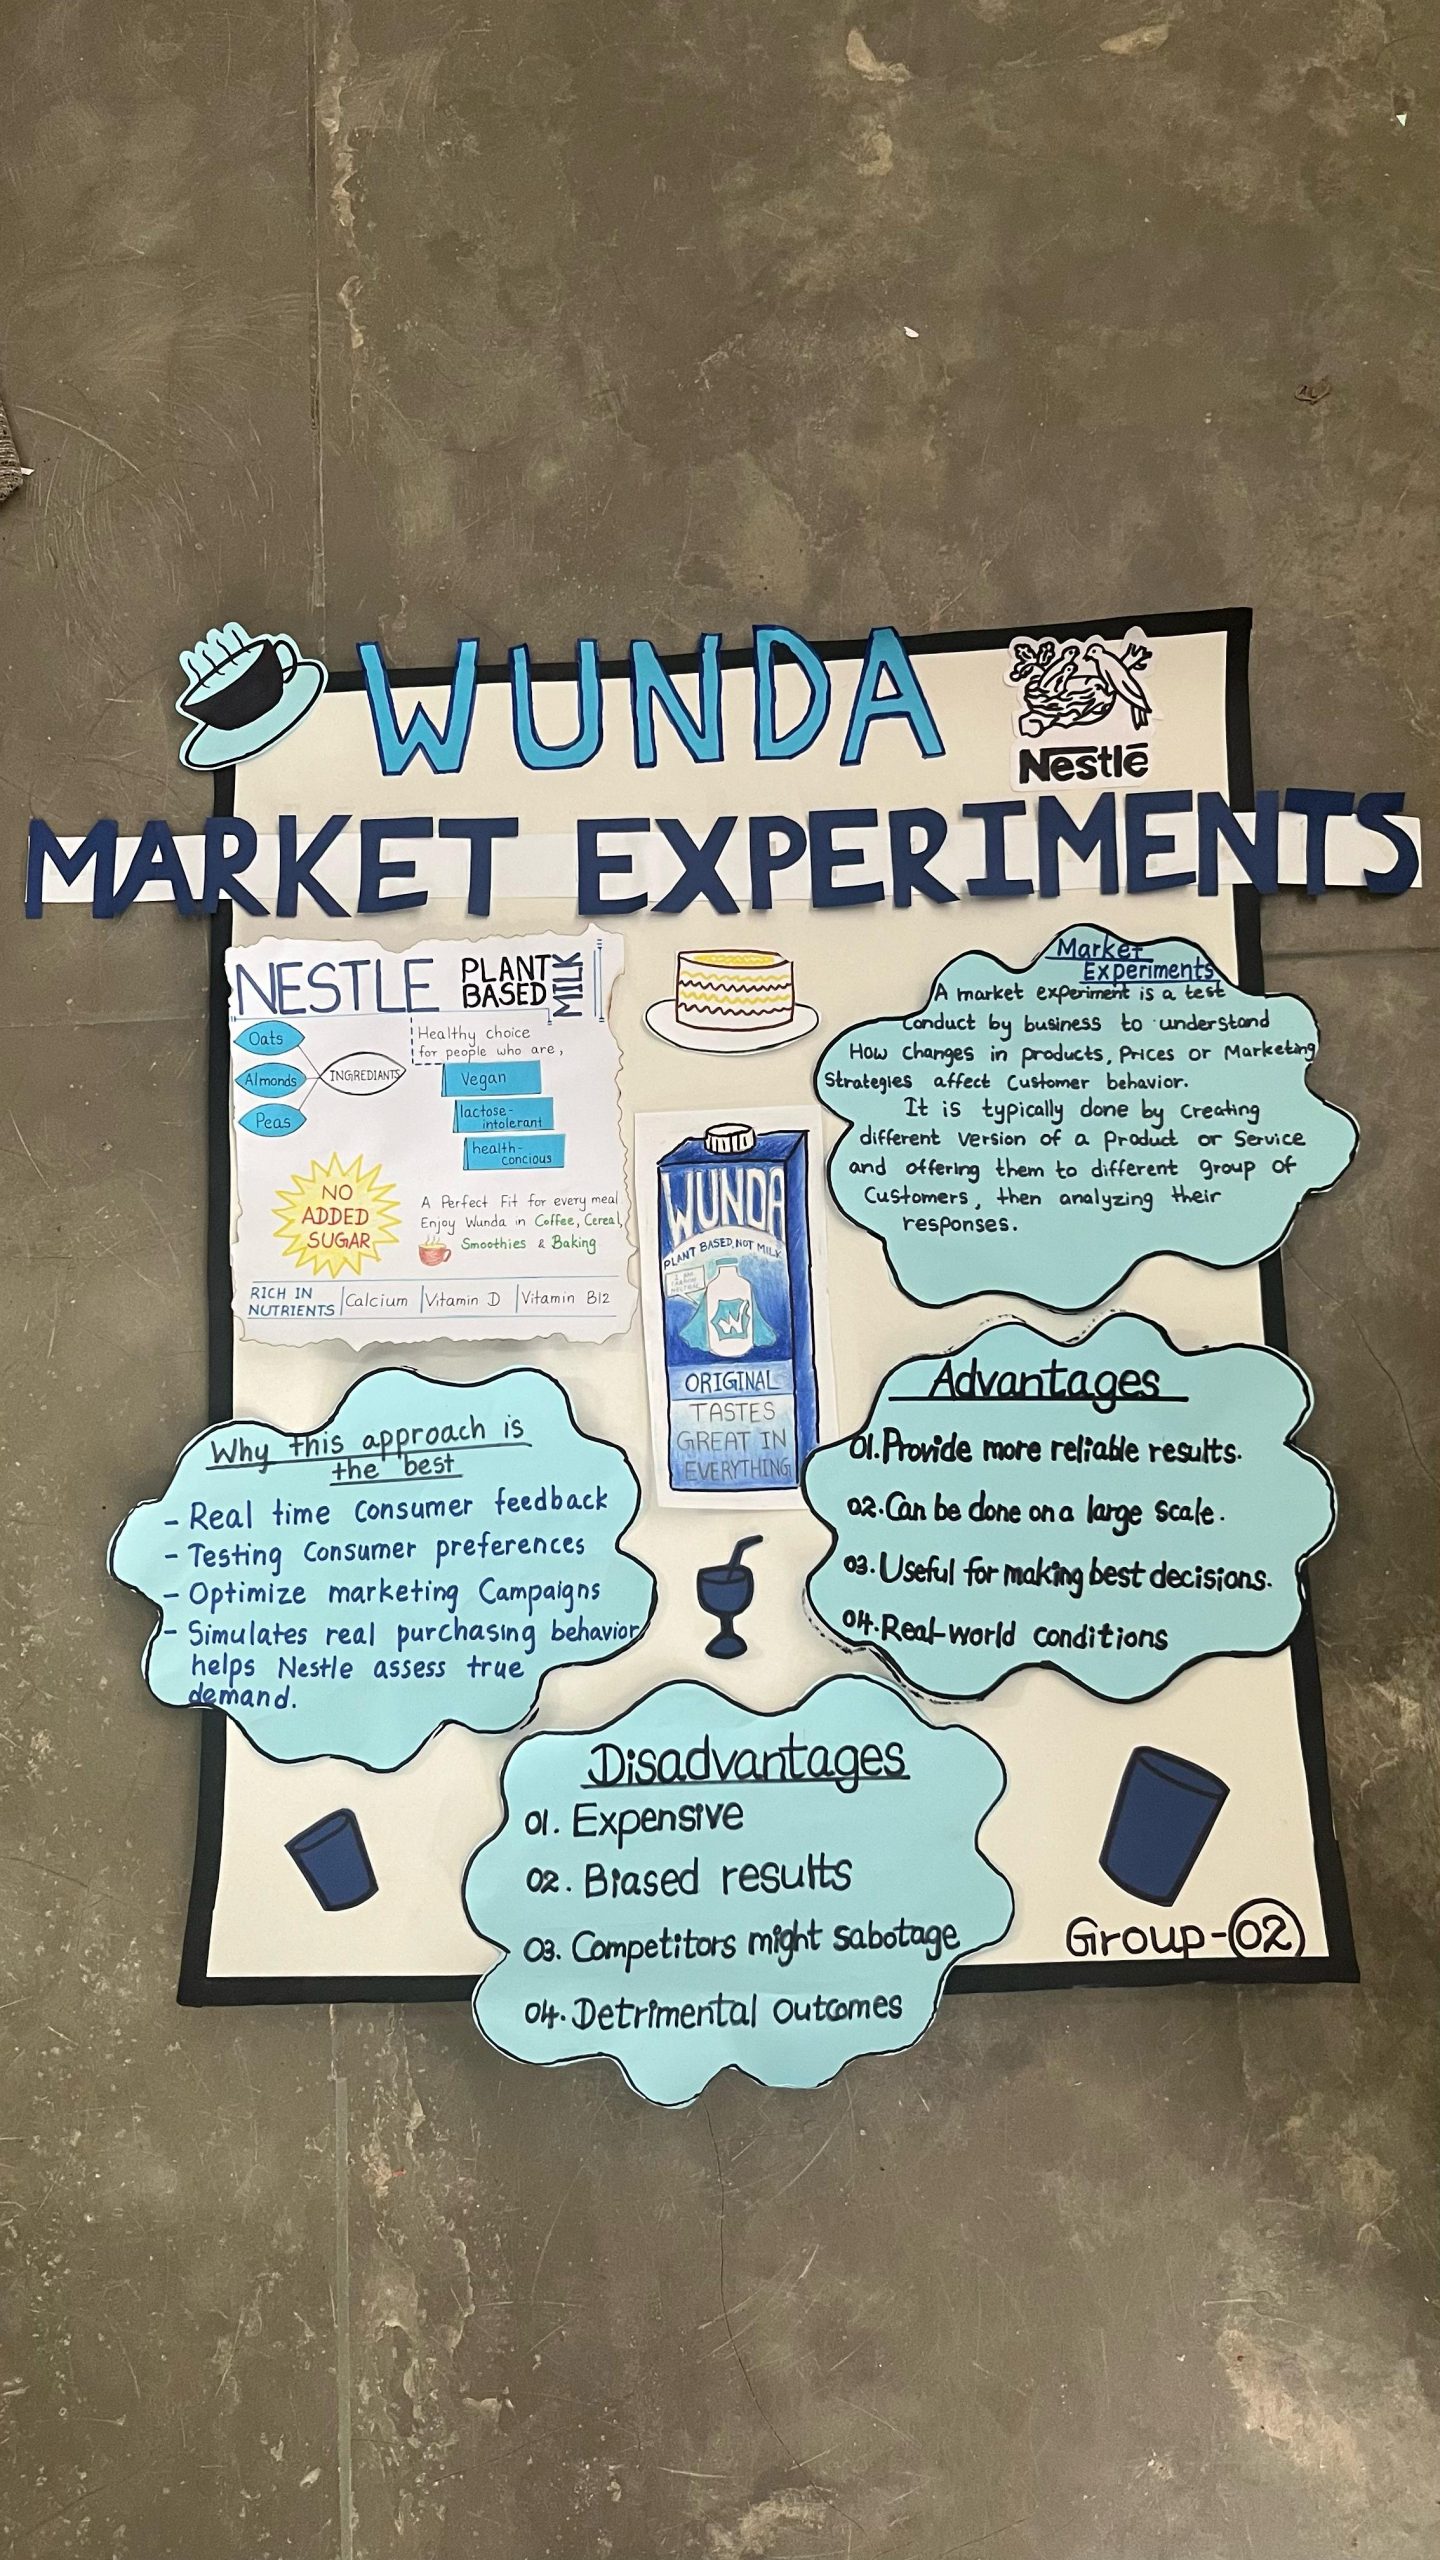 WUNDA
Nestlé
MARKET EXPERIMENTS
NESTLE PLANT
BASED
MILK
Oats
Almonds
Peas
INGREDIANTS
Healthy choice
for people who are,
Vegan
lactose-
intolerant
health-
concious
NO
ADDED
SUGAR
A Perfect Fit for every meal
Enjoy Wunda in Coffee, Cereal,
Smoothies & Baking
RICH IN
NUTRIENTS
Calcium
Vitamin D
Vitamin B12
WUNDA
PLANT BASED, NOT MILK
I AM
CARBON
NEUTRAL
W
ORIGINAL
TASTES
GREAT IN
EVERYTHING
Market
Experiments
A market experiment is a test
Conduct by business to understand
How changes in products, Prices or Marketing
Strategies affect Customer behavior.
It is typically done by creating
different version of a Product or Service
and offering them to different group of
Customers, then analyzing their
responses.
Why this approach is
the best
- Real time consumer feedback
- Testing Consumer preferences
- Optimize marketing Campaigns
- Simulates real purchasing behavior
helps Nestle assess true
demand.
Advantages
01. Provide more reliable results.
02. Can be done on a large scale.
03. Useful for making best decisions.
04. Real-world conditions
Disadvantages
01. Expensive
02. Biased results
03. Competitors might sabotage
04. Detrimental outcomes
Group-02